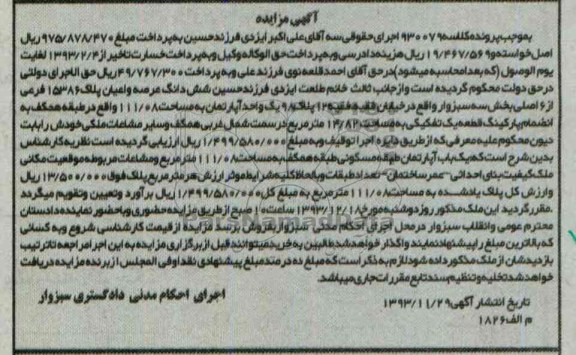 آگهی مزایده
بموجب پرونده کلاسه ۹۳۰۰۷۹ اجرای حقوقی سه آقای علی اکبر ایزدی فرزند حسین به پرداخت مبلغ ۹۷۵/۸۷۸/۴۷۰ ریال
اصل خواسته و ۱۹/۴۶۷/۵۶۹ ریال هزینه دادرسی و به پرداخت حق الوکاله وکیل و به پرداخت خسارت تاخیر از ۱۳۹۳/۲/۴ لغایت
یوم الوصول (که بعدا محاسبه میشود) در حق آقای احمد قلعه نوی فرزند علی و به پرداخت ۴۹/۷۶۷/۳۰۰ ریال حق الاجرای دولتی
در حق دولت محکوم گردیده است و از جانب ثالث خانم طلعت ایزدی فرزند حسین شش دانگ عرصه و اعیان پلاک ۱۵۳۸۶ فرعی
از ۶ اصلی بخش سه سبزوار واقع در خیابان فلقه فقیه ۱۲ پلاک ۹۸ یک واحد آپارتمان به مساحت ۱۱۱/۰۸ واقع در طبقه همکف به
انضمام پارکینگ قطعه یک تفکیکی به مساحت ۱۴/۸۲ متر مربع در سمت شمال غربی همکف وسایر مشاعات ملکی خودش را بابت
دیون محکوم علیه معرفی که از طریق دایره اجرا توقیف و به مبلغ ۱/۴۹۹/۵۸۰/۰۰۰ ریال ارزیابی گردیده است نظریه کارشناس
بدین شرح است که یک باب آپارتمان طبقه مسکونی طبقه همکف به مساحت ۱۱۱/۰۸ متر مربع و مشاعات مربوطه موقعیت مکانی
ملک کیفیت بنای احداثی - عمر ساختمان - تعداد طبقات و با لحاظ کلیه شرایط موثر ارزش هر متر مربع پلاک فوق ۱۳/۵۰۰/۰۰۰ ریال
وارزش کل پلاک یاد شده به مساحت ۱۱۱/۰۸ متر مربع به مبلغ کل ۱/۴۹۹/۵۸۰/۰۰۰ ریال برآورد وتعیین وتقویم میگردد
.مقرر گردید این ملک مذکور روز دوشنبه مورخ ۱۳۹۳/۱۲/۱۸ ساعت ۱۰ صبح از طریق مزایده حضوری و با حضور نماینده دادستان
محترم عمومی وانقلاب سبزوار در محل اجرای احکام مدنی سبزوار بفروش برسد مزایده از قیمت کارشناسی شروع و به کسانی
که بالاترین مبلغ را پیشنهاد نمایند واگذار خواهد شد طالبین به خرید میتوانند قبل از برگزاری مزایده به این اجرا مراجعه تا ترتیب
بازدیدشان از ملک مذکور داده شود لازم به ذکر است که مبلغ ده درصد مبلغ پیشنهادی نقدا و فی المجلس از برنده مزایده دریافت
خواهد شد تخلیه و تنظیم سند تابع مقررات جاری میباشد.
تاریخ انتشار آگهی ۱۳۹۳/۱۱/۲۹
اجرای احکام مدنی دادگستری سبزوار
م الف ۱۸۲۶